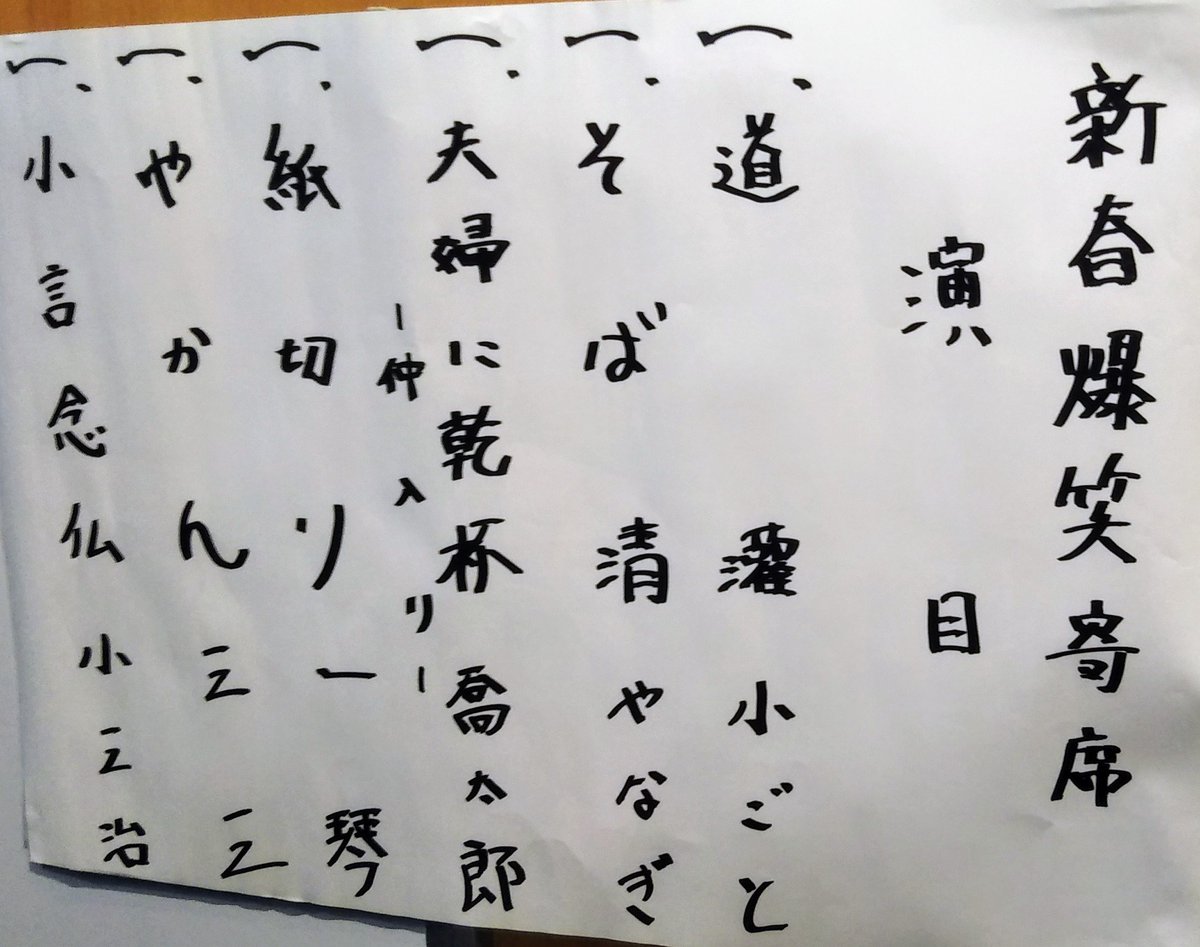 新春爆笑寄席
演目
一、道灌 小ごと
一、そば清 やなぎ
一、夫婦に乾杯 喬太郎
ー仲入りー
一、紙切り 一琴
一、やかん 三三
一、小言念仏 小三治